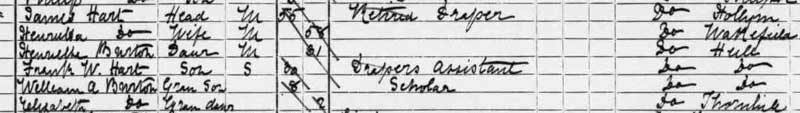 James Hart Head M 55 Retired Draper Do Hollym
Henrietta Do Wife M 58 Do Wakefield
Henrietta Burton Daur M 31 Do Hull
Frank W. Hart Son S 20 Drapers Assistant Do Do
William A Burton Gran Son 8 Scholar Do Do
Elizabeth Do Gran daur 2 Do Thornhill